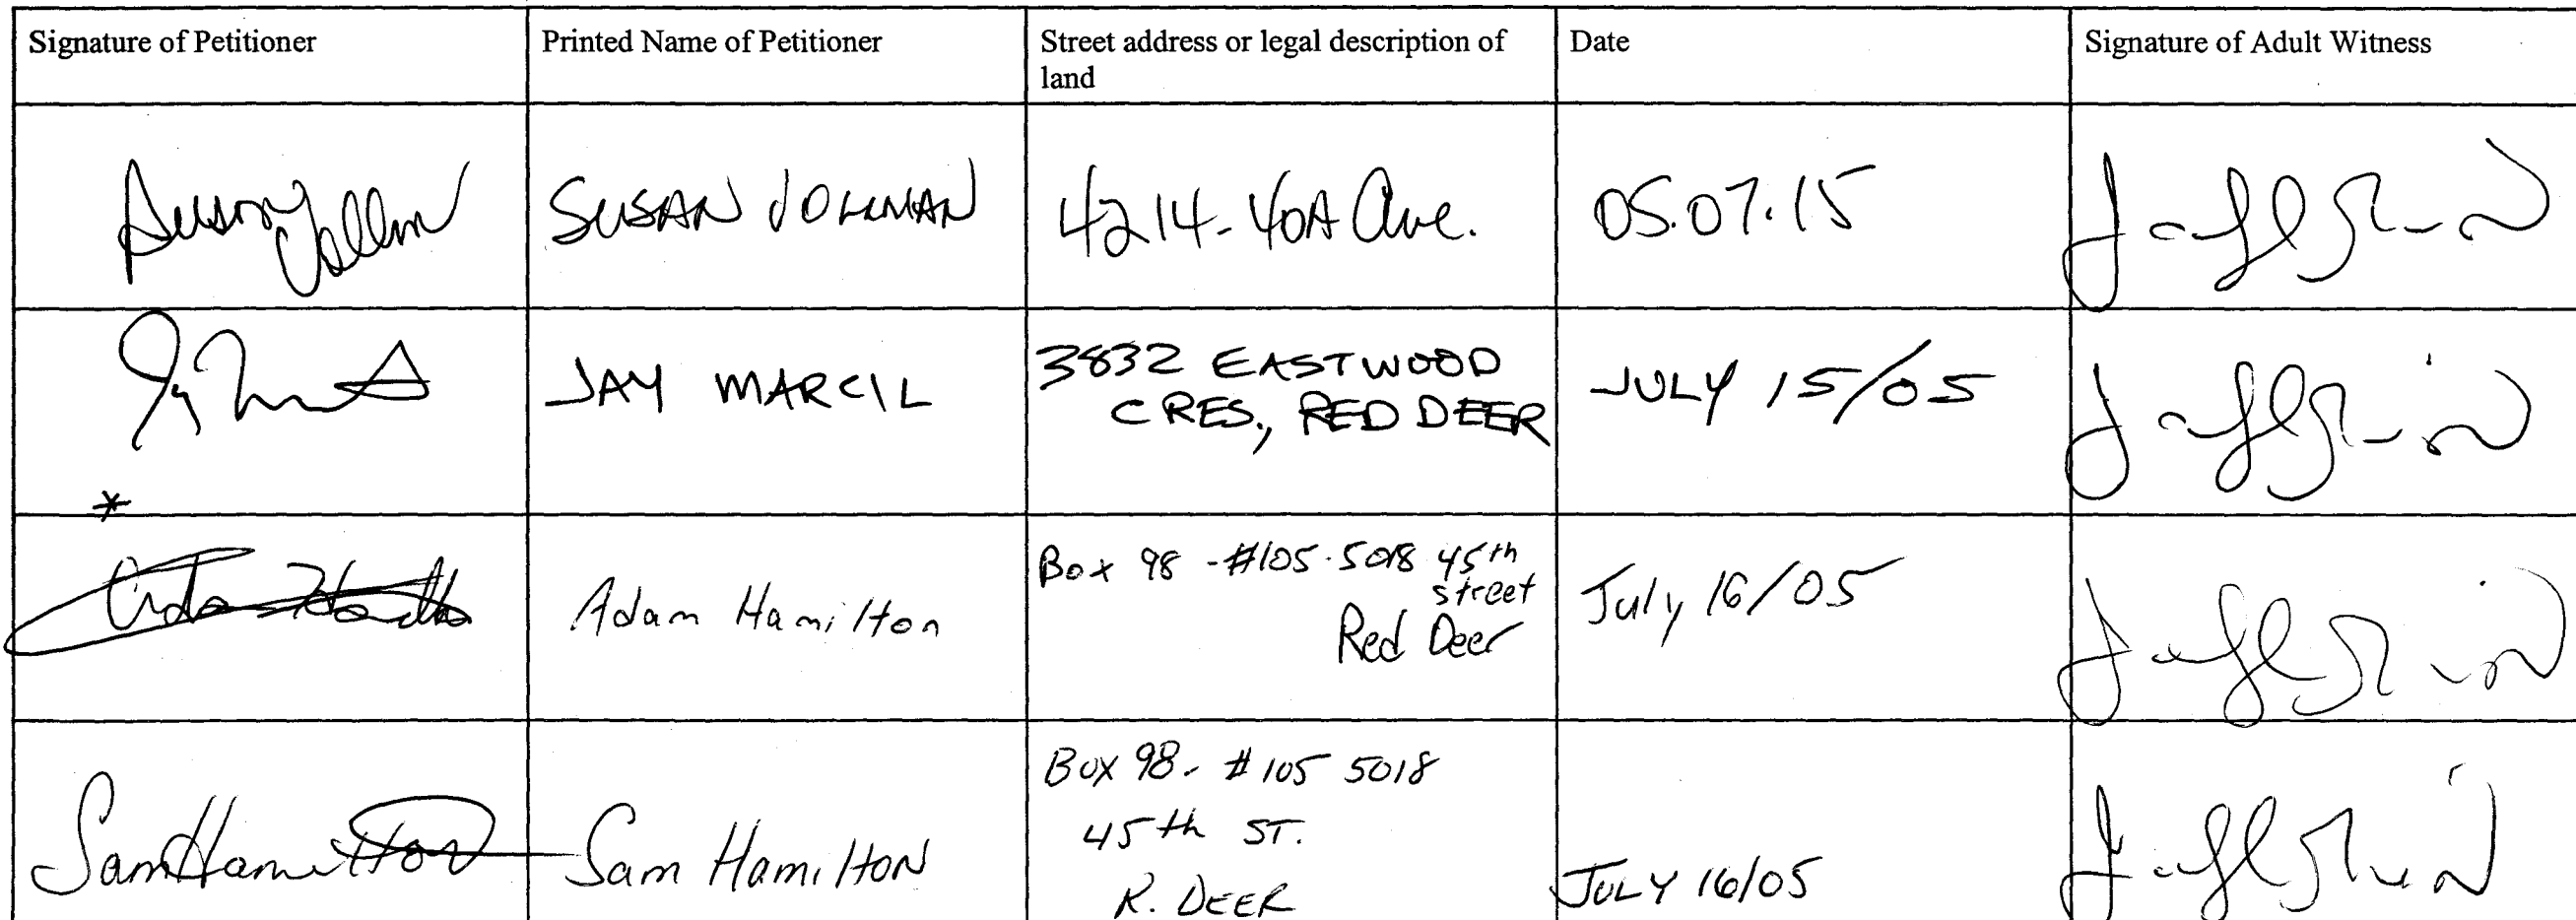 Signature of Petitioner
Printed Name of Petitioner
Street address or legal description of
land
Date
Signature of Adult Witness
SUSAN
4214-40A Ave.
05.07.15
JAY MARCIL
3832 EASTWOOD
CRES., RED DEER
JULY 15/05
*
Adam Hamilton
Box 98 - #105-5018 45th
street
Red Deer
July 16/05
Sam Hamilton
Sam Hamilton
Box 98 - #105 5018
45th ST.
R. DEER
JULY 16/05